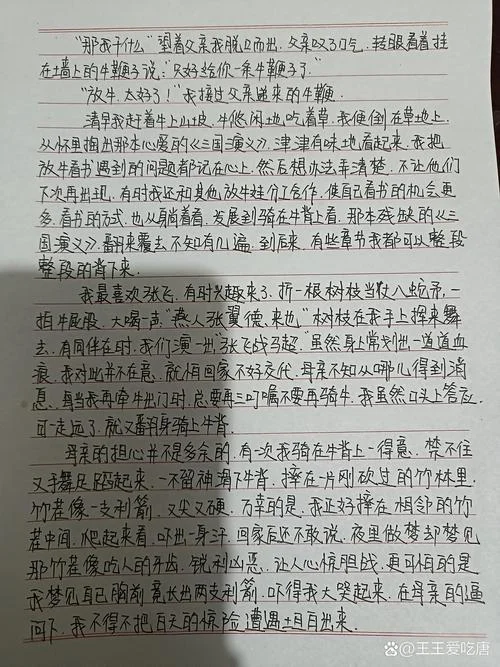 “那我干什么”望着父亲我脱口而出,父亲叹了口气,转眼看着挂
在墙上的牛鞭子说:“只好给你一条牛鞭子了。”
“放牛,太好了!”我接过父亲递来的牛鞭.
清早我赶着牛上山坡,牛悠闲地吃着草,我便倒在草地上,
从怀里掏出那本心爱的《三国演义》,津津有味地看起来,我把
放牛看书遇到的问题都记在心上,然后想办法弄清楚,不让他们
下次再出现,有时我还和其他放牛娃分工合作,使自己看书的机会更
多,看书的方式,也从躺着看,发展到骑在牛背上看,那本残缺的《三
国演义》,翻来覆去不知有几遍,到后来,有些章节我都可以整段
整段的背下来.
我最喜欢张飞,有时兴趣来了,折一根树枝当丈八蛇矛,一
拍牛屁股,大喝一声“燕人张翼德,来也”树枝在我手上挥来舞
去,有同伴在时,我们演一出“张飞战马超”虽然身上常划出一道道血
痕,我对此并不在意,就怕回家不好交代,母亲不知从哪儿得到消
息,每当我再牵牛出门时,总要再三叮嘱不要再骑牛,我虽然口头上答应,
可一走远了,就又翻身骑上牛背.
母亲的担心并不是多余的,有一次我骑在牛背上一得意,禁不住
又手舞足蹈起来,一不留神滑下牛背,摔在一片刚砍过的竹林里,
竹茬像一支利箭,又尖又硬,万幸的是,我正好摔在相邻的竹
茬中间,爬起来看,吓出一身汗,回家后还不敢说,夜里做梦却梦见
那竹茬像吃人的牙齿,锐利凶恶,让人心惊胆战,更可怕的是
我梦见自己胸前竟长出两支利箭,吓得我大哭起来,在母亲的逼
问下,我不得不把白天的惊险遭遇
出来.
@王王爱吃唐